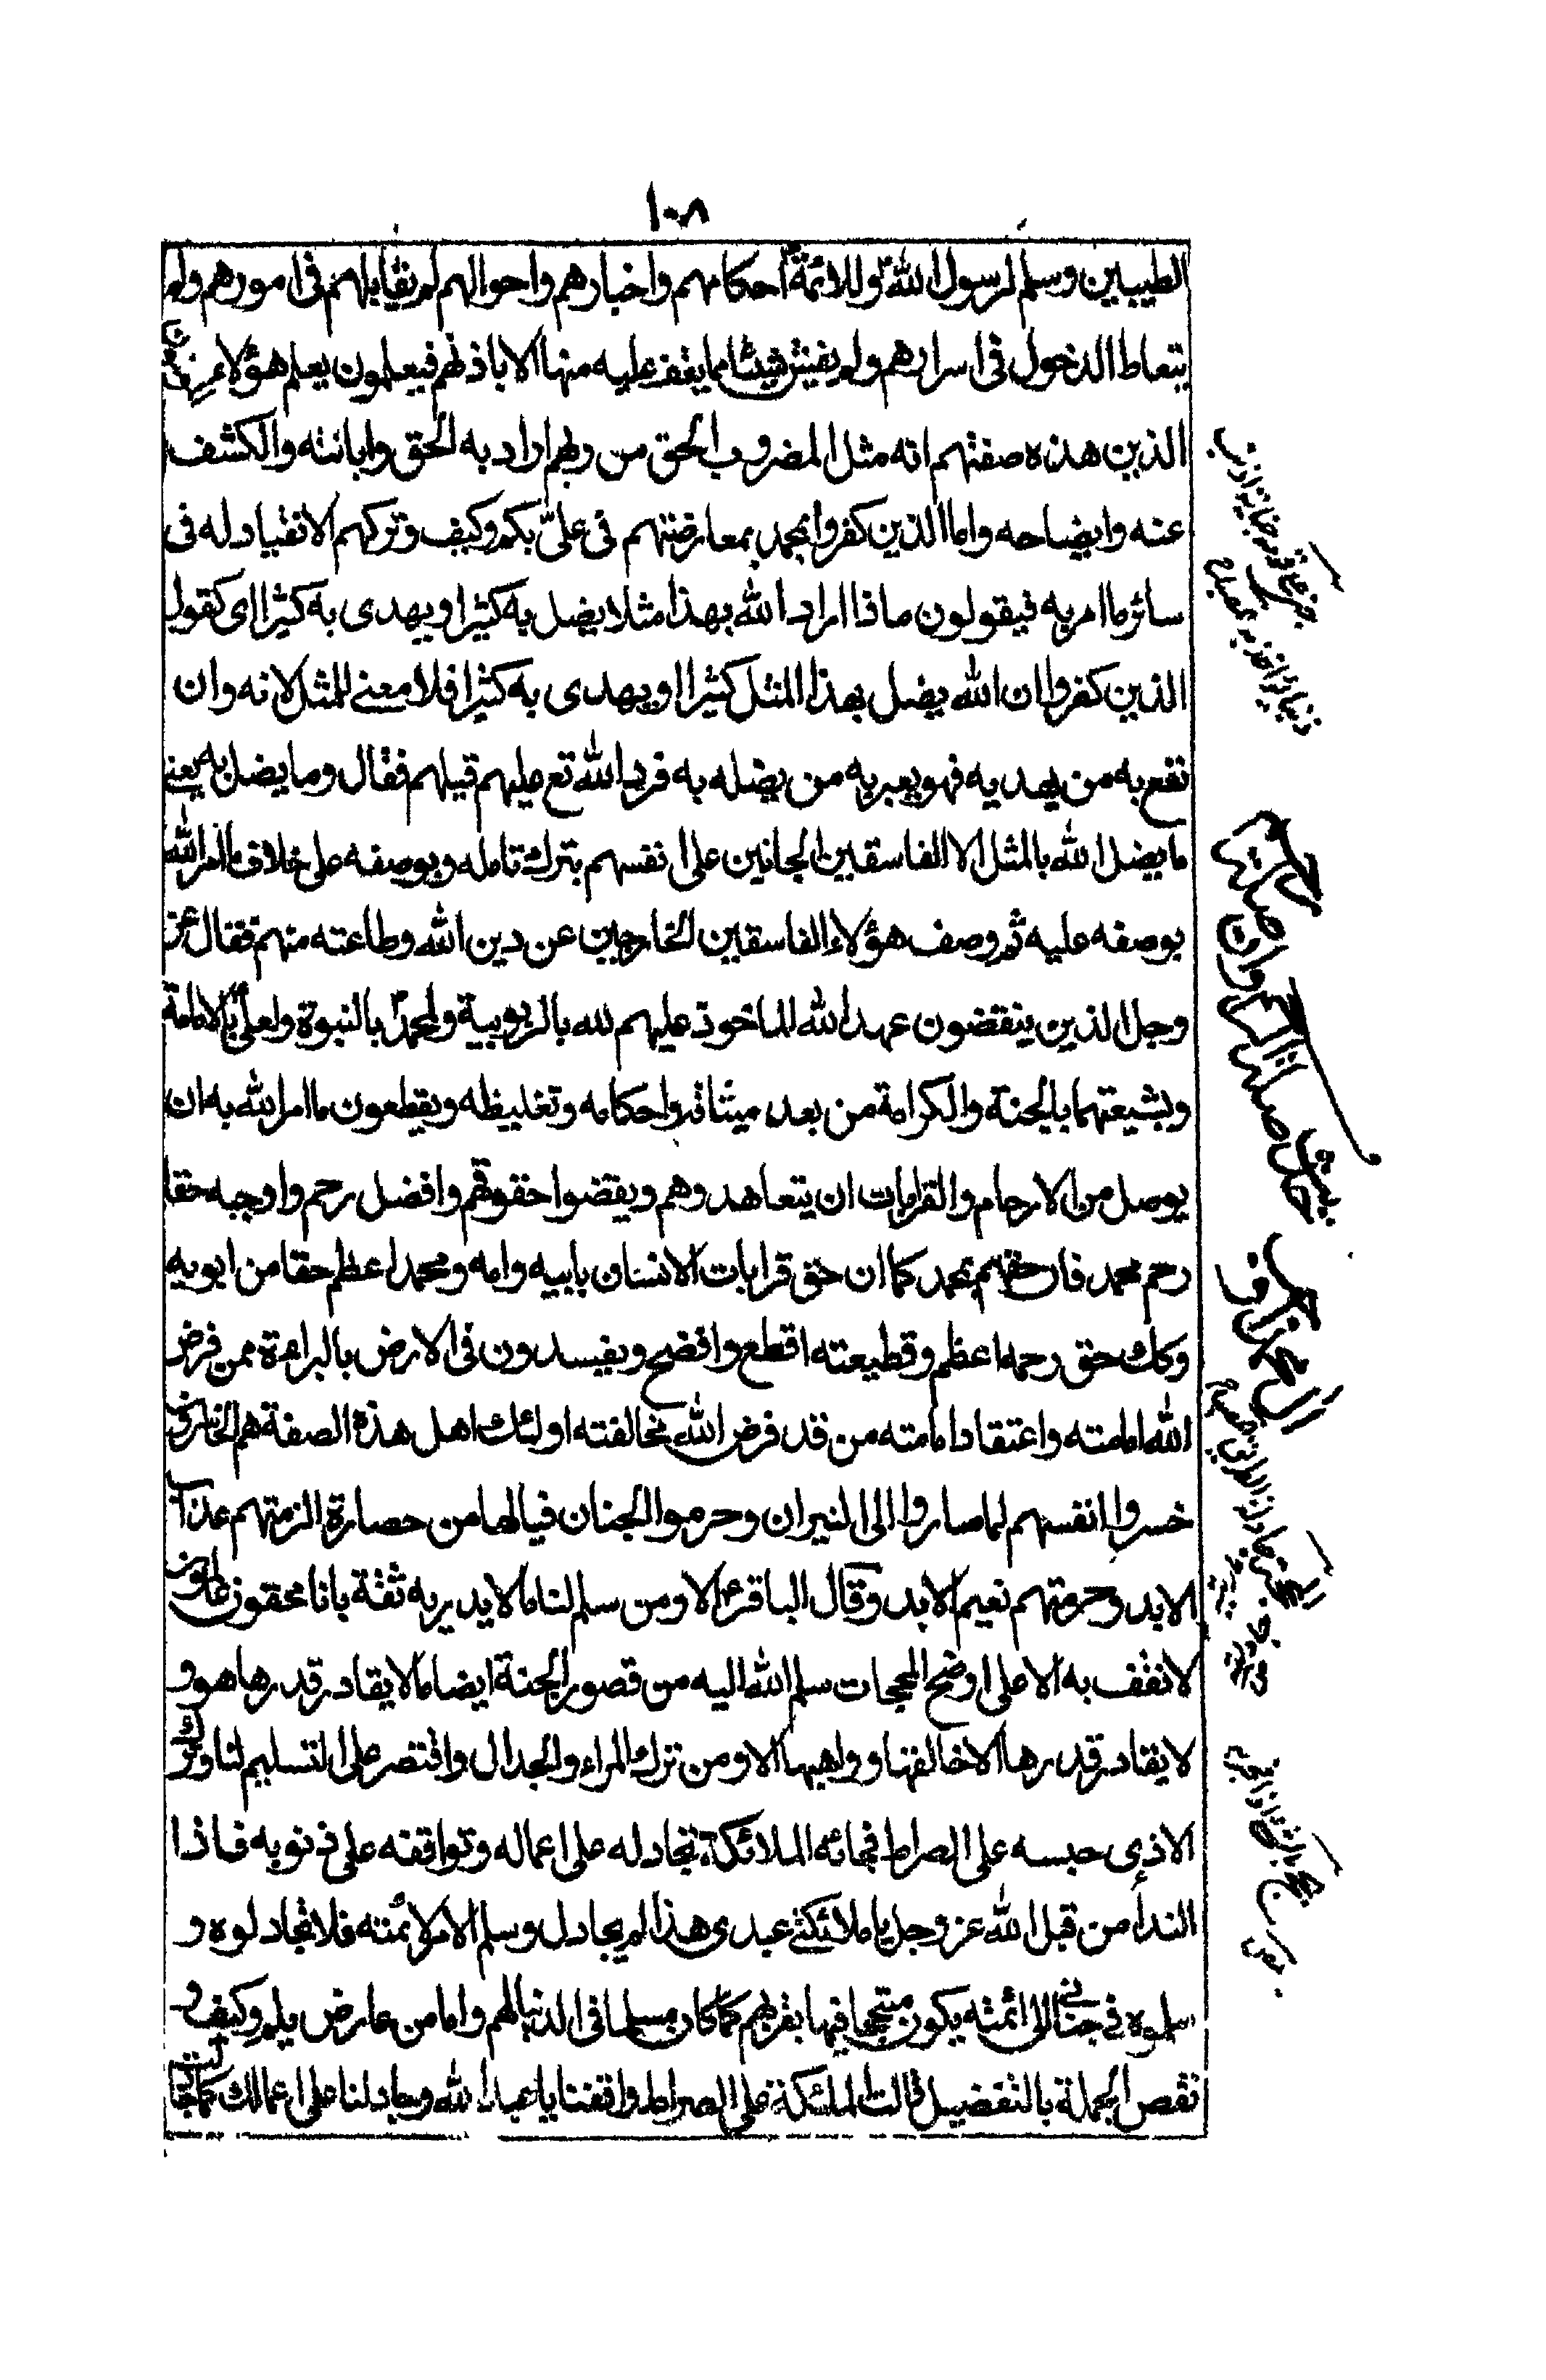 ١٠٨
الطيبين وسلم لرسول الله وللائمة احكامهم واخبارهم واحوالهم لم يقابلهم فى امورهم ولم
يتعاط الدخول فى اسرارهم ولم يفش شيئا مما يقف عليه منها الا باذنهم فيعلمون يعلم هؤلاء
الذين هذه صفتهم انه مثل المضروب الحق من ربهم اراد به الحق وابانته والكشف
عنه وايضاحه واما الذين كفروا بمحمد بمعارضتهم فى على بكم وكيف وتركهم الانقياد له فى
سائر ما امر به فيقولون ماذا اراد الله بهذا مثلا يضل به كثيرا ويهدى به كثيرا اى كقول
الذين كفروا ان الله يضل بهذا المثل كثيرا ويهدى به كثيرا فلا معنى للمثل لانه وان
نفع به من يهديه فهو يعبر به من يضله به فرد الله تع عليهم قيلهم فقال وما يضل به يعنى
ما يضل الله بالمثل الا الفاسقين الجانين على انفسهم بترك تامله وبوصفه على خلاف ما امر الله
بوصفه عليه ثم وصف هؤلاء الفاسقين الخارجين عن دين الله وطاعته منهم فقال عز
وجل الذين ينقضون عهد الله الماخوذ عليهم لله بالربوبية ولمحمد بالنبوة ولعلى بالامامة
وبشيعتهما بالجنة والكرامة من بعد ميثاقه واحكامه وتغليظه ويقطعون ما امر الله به ان
يوصل من الارحام والقرابات ان يتعاهدوهم ويقضوا حقوقهم وافضل رحم واوجبه حقا
رحم محمد فان حقهم بمحمد كما ان حق قرابات الانسان بابيه وامه ومحمد اعظم حقا من ابويه
وكك حق رحمه اعظم وقطيعته اقطع وافضح ويفسدون فى الارض بالبراءة ممن فرض
الله امامته واعتقاد امامته من قد فرض الله مخالفته اولئك اهل هذه الصفة هم الخاسرون
خسروا انفسهم لما صاروا الى النيران وحرموا الجنان فيالها من خسارة الزمتهم عذاب
الابد وحرمتهم نعيم الابد وقال الباقر ع الا ومن سلم لنا ما لا يدريه ثقة بانا محقون عالمون
لا نقف به الا على اوضح المحجات سلم الله اليه من قصور الجنة ايضا ما لا يقادر قدرها هو و
لا يقادر قدرها الا خالقها وواهبها الا ومن ترك المراء والجدال واقتصر على التسليم لنا وترك
الاذى حبسه على الصراط فجائه الملائكة تجادله على اعماله وتواقفه على ذنوبه فاذا
النداء من قبل الله عز وجل يا ملائكتى عبدى هذا لم يجادل وسلم الامر لائمته فلا تجادلوه و
سلموه فى جنانى الى ائمته يكون متبجحا فيها بقربهم كما كان مسلما فى الدنيا لهم واما من عارض بلم وكيف و
نقص الجملة بالتفضيل قالت الملئكة على الصراط واقفنا يا عبد الله وجادلنا على اعمالك كما